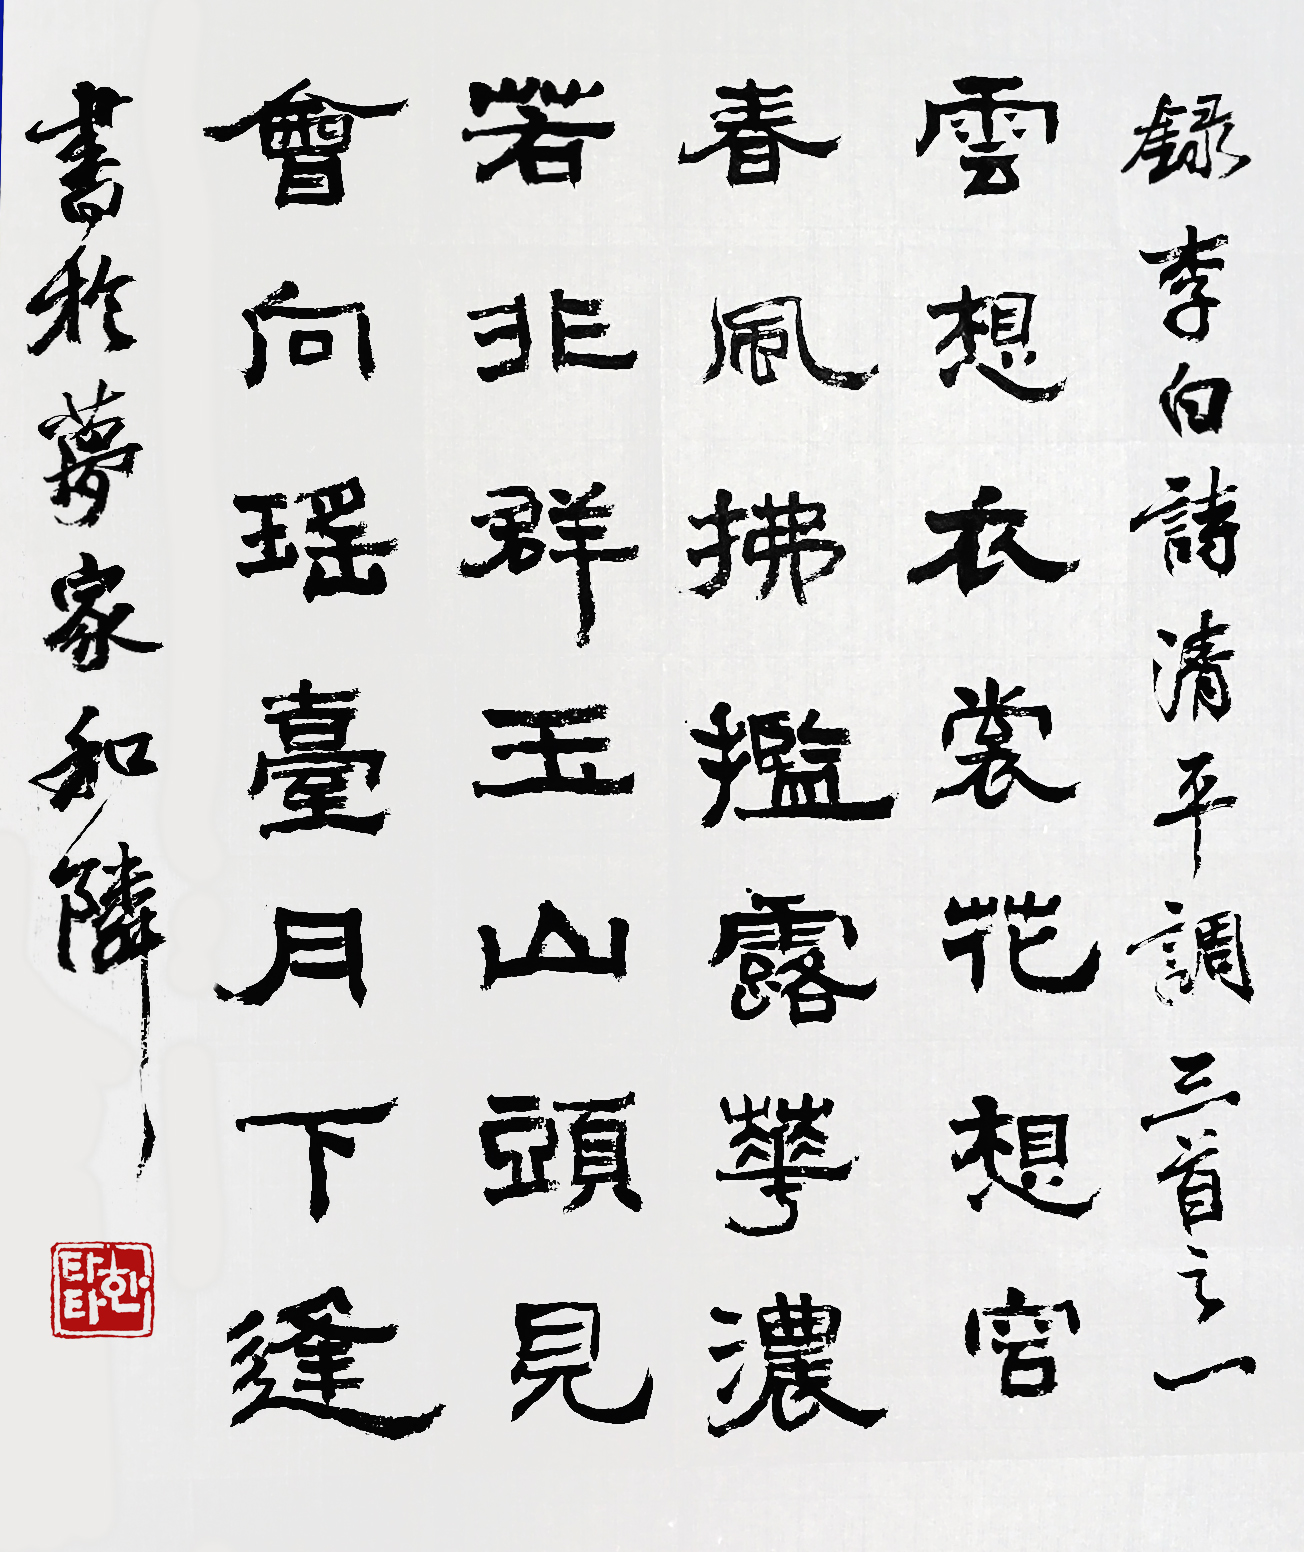 錄李白詩清平調三首之一
雲想衣裳花想宮
春風拂㩜露華濃
若非群玉山頭見
會向瑤臺月下逢
書於夢家和隣
한타타